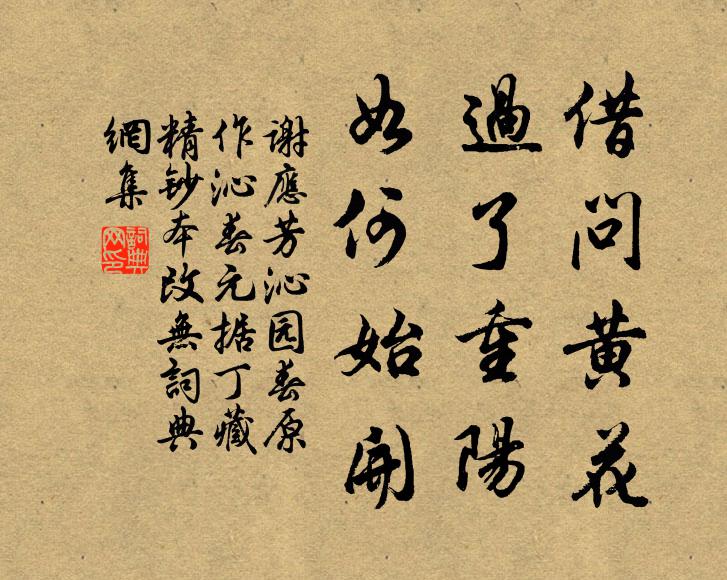 借問黄花
過了重陽
如何始開
謝應芳沁园春原
作沁春元据丁藏
精鈔本改無詞典
網集
詞典
网印